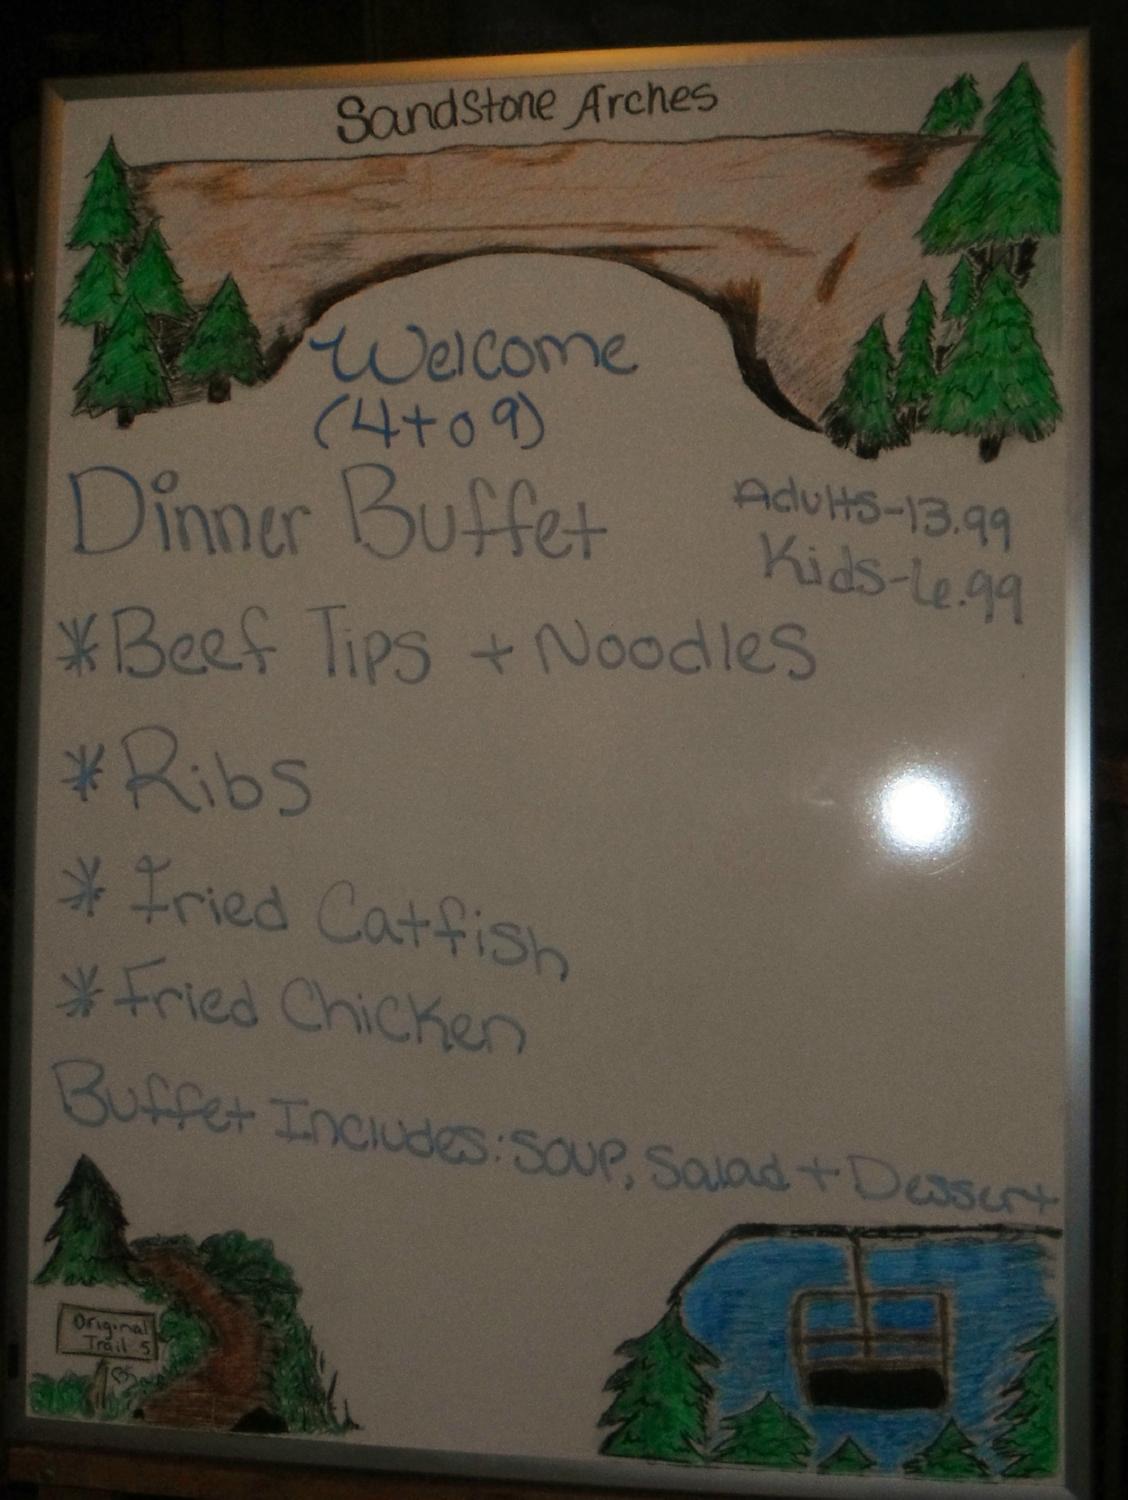 SandStone Arches
Welcome
(4 to 9)
Dinner Buffet
Adults-13.99
Kids-6.99
*Beef Tips + Noodles
* Ribs
* Fried Catfish
* Fried Chicken
Buffet Includes: Soup, Salad + Dessert
Original
Trail 5